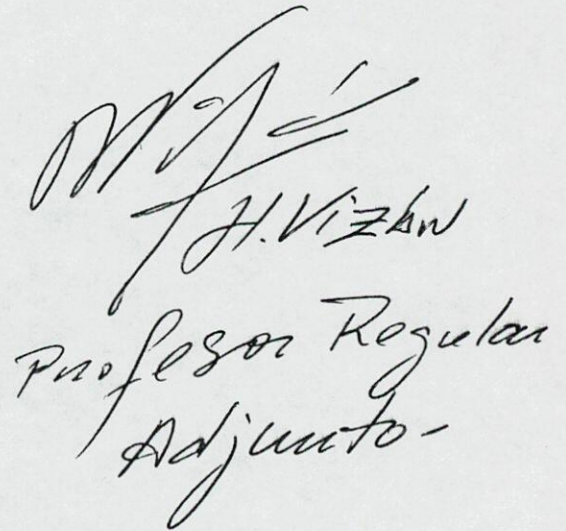 H. Vizán
Profesor Regular
Adjunto-